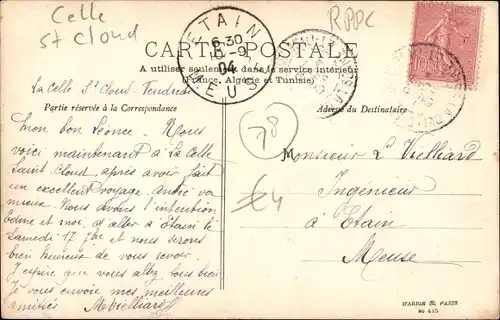 Celle
St Cloud
RPPC
ETAIN
6-30
15-9
04
MEUSE
CARTE POSTALE
A utiliser seulement dans le service intérieur
(France, Algérie et Tunisie)
La Celle St Cloud Vendredi
Partie réservée à la Correspondance
Adresse du Destinataire
Mon bon Léonce - Nous
voici maintenant à La Celle
Saint Cloud, après avoir fait
un excellent voyage. André va
mieux. Nous avons l'intention
et moi, d'aller à Etain le
Samedi 17 7bre et nous serons
bien heureux de vous revoir.
J'espère que vous allez tous bien
Je vous envoie mes meilleures
amitiés MVielliard
78
€4
Monsieur L Vielliard
Ingénieur
à Etain
Meuse
MARION PARIS
No 415